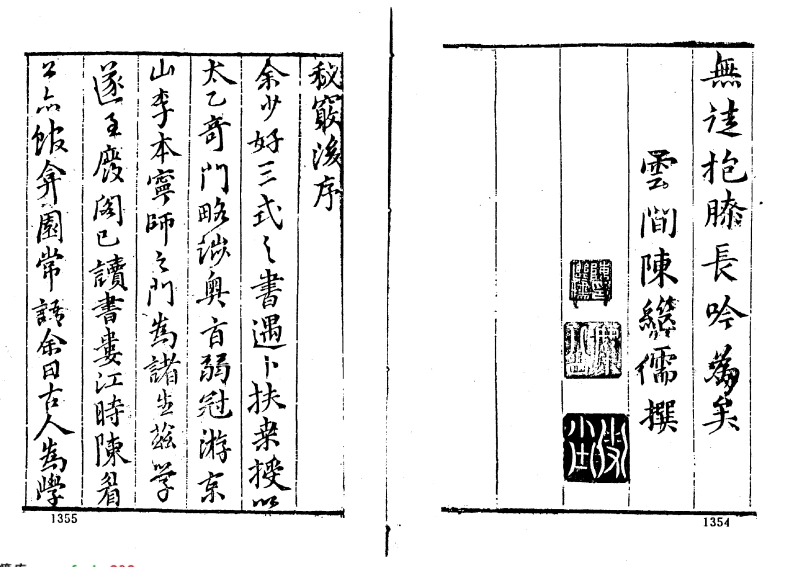 無徒抱膝長吟為矣
雲間陳繼儒撰
1354
秘竅後序
余少好三式之書遇卜扶桒授以
太乙奇門略涉奥旨弱冠游京
山李本寧師之門為諸生茲学
遂至廢閣已讀書婁江時陳眉
公亦館弇園常語余曰古人為學
1355